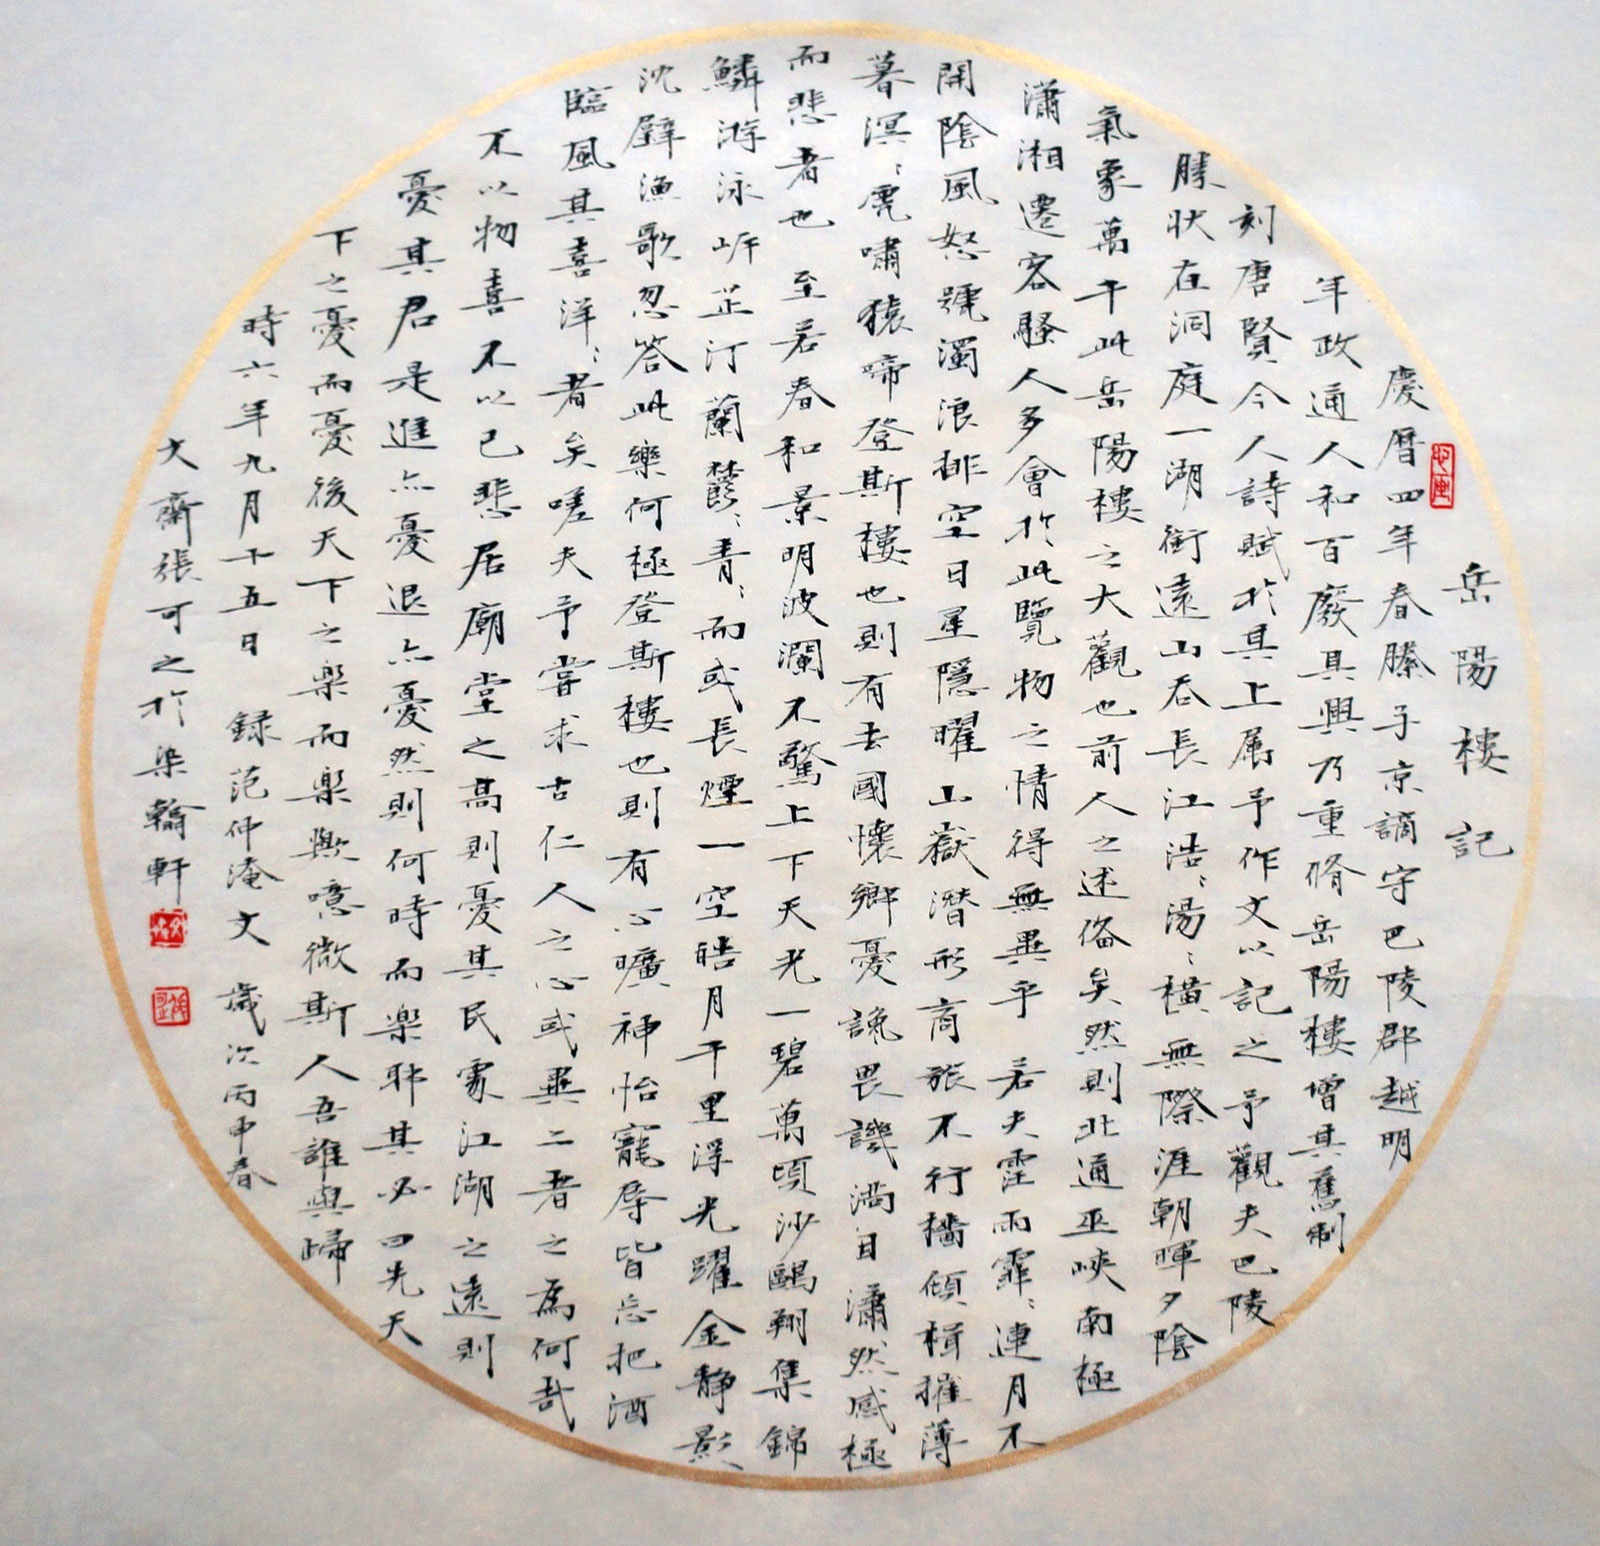 岳陽樓記
慶曆四年春縢子京謫守巴陵郡越明
年政通人和百廢具興乃重脩岳陽樓增其舊制
刻唐賢今人詩賦於其上属予作文以記之予觀夫巴陵
勝狀在洞庭一湖銜遠山吞長江浩〻湯〻橫無際涯朝暉夕陰
氣象萬千此岳陽樓之大觀也前人之述俻矣然則北通巫峽南極
瀟湘遷客騷人多會於此覽物之情得無異乎 若夫霪雨霏〻連月不
開陰風怒號濁浪排空日星隱曜山嶽潛形商旅不行檣傾楫摧薄
暮溟〻虎嘯猿啼登斯樓也則有去國懷鄉憂讒畏譏滿目瀟然感極
而悲者也 至若春和景明波瀾不驚上下天光一碧萬頃沙鷗翔集錦
鱗游泳岸芷汀蘭鬱〻青〻而或長煙一空皓月千里浮光躍金靜影
沈璧漁歌忽答此樂何極登斯樓也則有心曠神怡寵辱皆忘把酒
臨風其喜洋〻者矣嗟夫予嘗求古仁人之心或異二者之為何哉
不以物喜不以己悲居廟堂之高則憂其民處江湖之遠則
憂其君是進亦憂退亦憂然則何時而樂耶其必曰先天
下之憂而憂後天下之樂而樂歟噫微斯人吾誰與歸
時六年九月十五日 録范仲淹文 歲次丙申春
大齋張可之於染翰軒